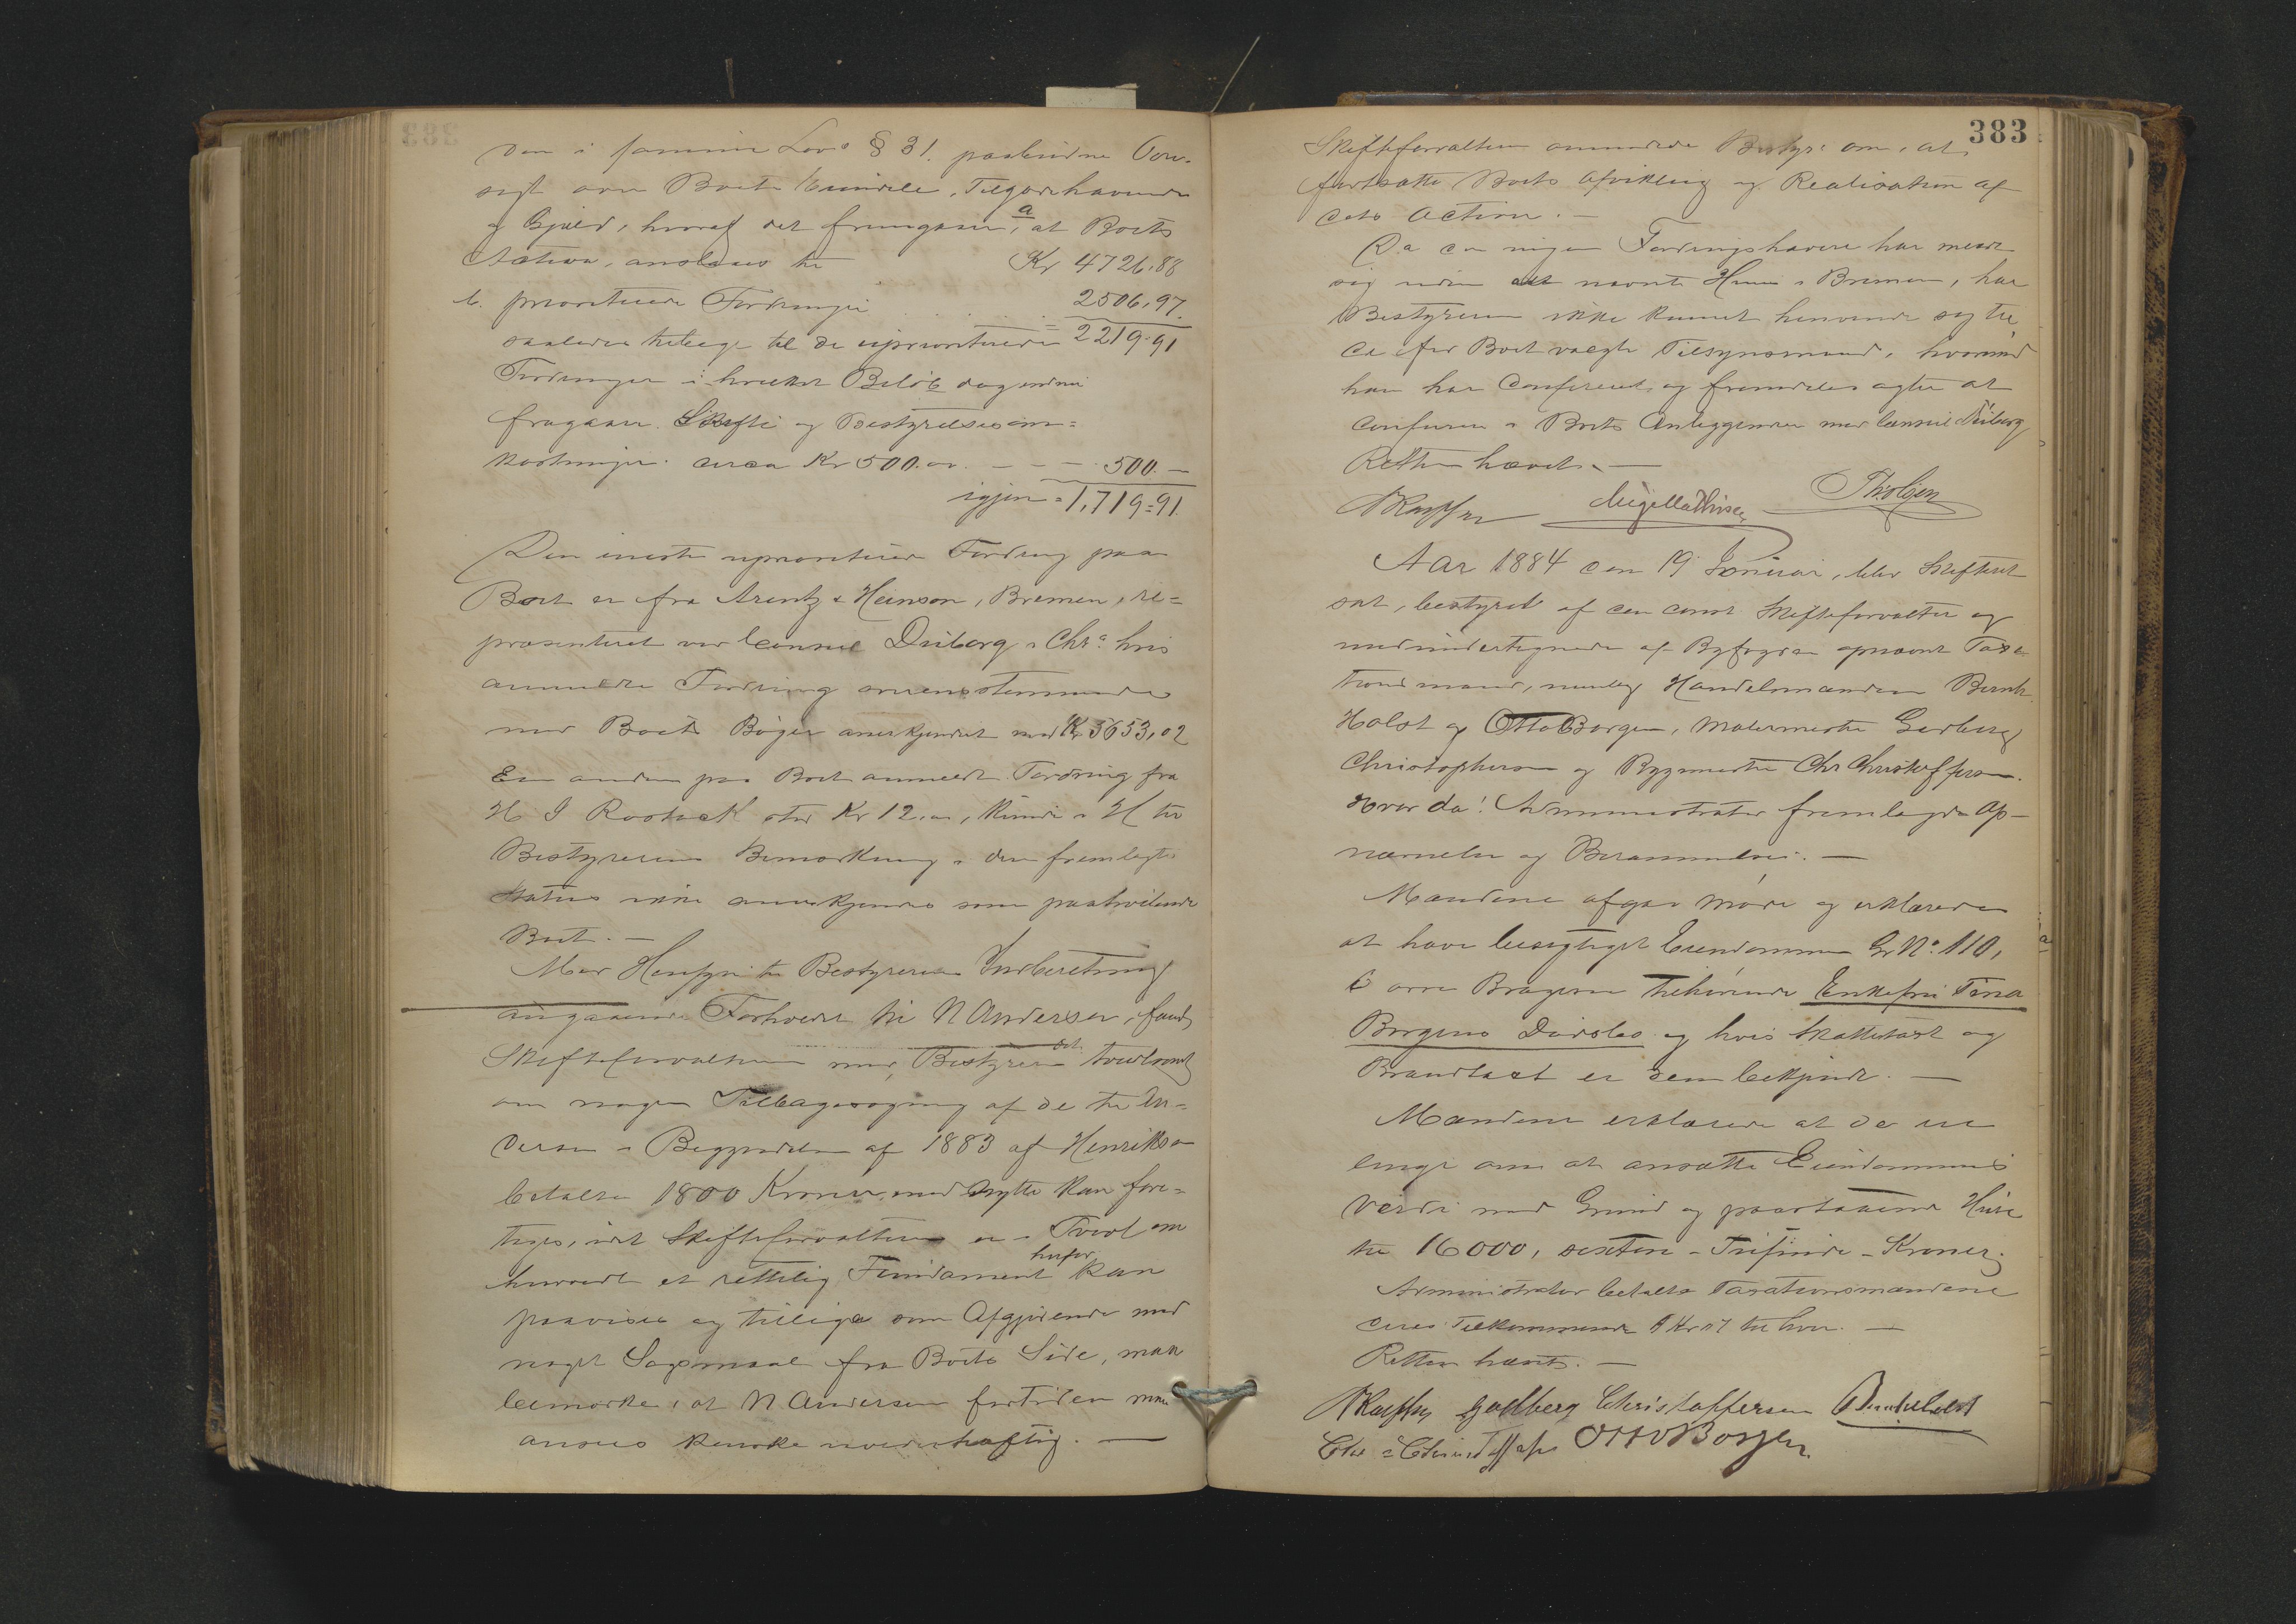 den i samme Lovs § 31. paabudne Over-
sigt over Boets Eiendele, Tilgodehavende
og Gjæld, hvoraf det fremgaar, a at Boets
Activa, anslaaes til Kr 4726.88
b. prioriterede Fordringer 2506,97.
saaledes tilbage til de uprioriterede = 2219.91
Fordringer i hvilket Beløb dog endnu
fragaar Skifte og Bestyrelsesom=
kostninger circa Kr 500.00 - - - 500.—
igjen = 1,719=91.
Den eneste uprioriterede Fordring paa
Boet er fra Arentz & Heinson, Bremen, re=
præsenteret ved Consul Duborg i Chra: hvis
anmeldte Fordring overensstemmende
med Boets Bøger anerkjendtes med Kr 3653,02
En anden paa Boet anmeldt Fordring fra
H. J Rostock stor Kr 12.00, kunde i H til
Bestyrerens Bemærkning i den fremlagte
Status ikke anerkjendes som paahvilende
Boet. —
Med Hensyn til Bestyrerens Indberetning
angaaende Forholdet til N Andersen, fandt
Skifteforvalteren med Bestyreren det tvivlsomt
om nogen Tilbagesøgning af de til An-
dersen i Begyndelsen af 1883 af Henriksen
betalte 1800 Kroner, med Nytte kan fore=
tages, idet Skifteforvalteren er i Tvivl om
hvorvidt et retslig Fundament herfor kan
paavises og tillige som Afgjørende mod
noget Søgsmaal fra Boets Side, maa
bemærke, at N Andersen fortiden maa
ansees ganske uvederhæftig. —
383
Skifteforvalteren anmodede Bestyr: om, at
fortsætte Boets Afvikling og Realisation af
dets Activa. —
Da der ingen Fordringshavere har meldt
sig uden det nævnte Huus i Bremen, har
Bestyreren ikke kunnet henvende sig til
de for Boet valgte Tilsynsmænd, hvorimod
han har confereret og fremdeles agter at
conferere i Boets Anliggender med Consul Duborg
Retten hævet. —
Aar 1884 den 19 Januar, blev Skifteret
sat, bestyret af den const Skifteforvalter og
medundertegnede af Byfogden opnævnte Taxa
tionsmænd, nemlig Handelsmændene Bernh.
Holst og Otto Borgen, Malermester Gudberg
Christophersen og Bygmester Chr Christoffersen.
Hvor da: Administrator fremlagde Op-
nævnelse og Berammelse. —
Mændene afgav Møde og erklærede
at have besigtiget Eiendommen Gr No. 110,
b øvre Bragernes tilhørende Enkefru Tina
Borgens Dødsbo og hvis Skattetaxt og
Brandtaxt er dem bekjendt. —
Mændene erklærede at de ere
enige om at ansætte Eiendommens
Værdi med Grund og paastaaende Huse
til 16000, sexten - Tusinde - Kroner.
Administrator betalte Taxationsmændene
deres Tilkommende til hver. —
Retten hævet. —
Gudberg Christoffersen Bernh Holst
Chr Christoffersen Otto Borgen